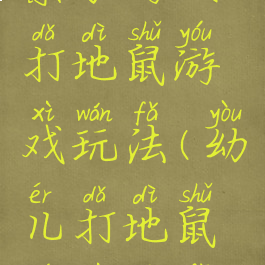 dǎ dì shǔ yóu
打地鼠游
xì wán fǎ yòu
戏玩法(幼
ér dǎ dì shǔ
儿打地鼠